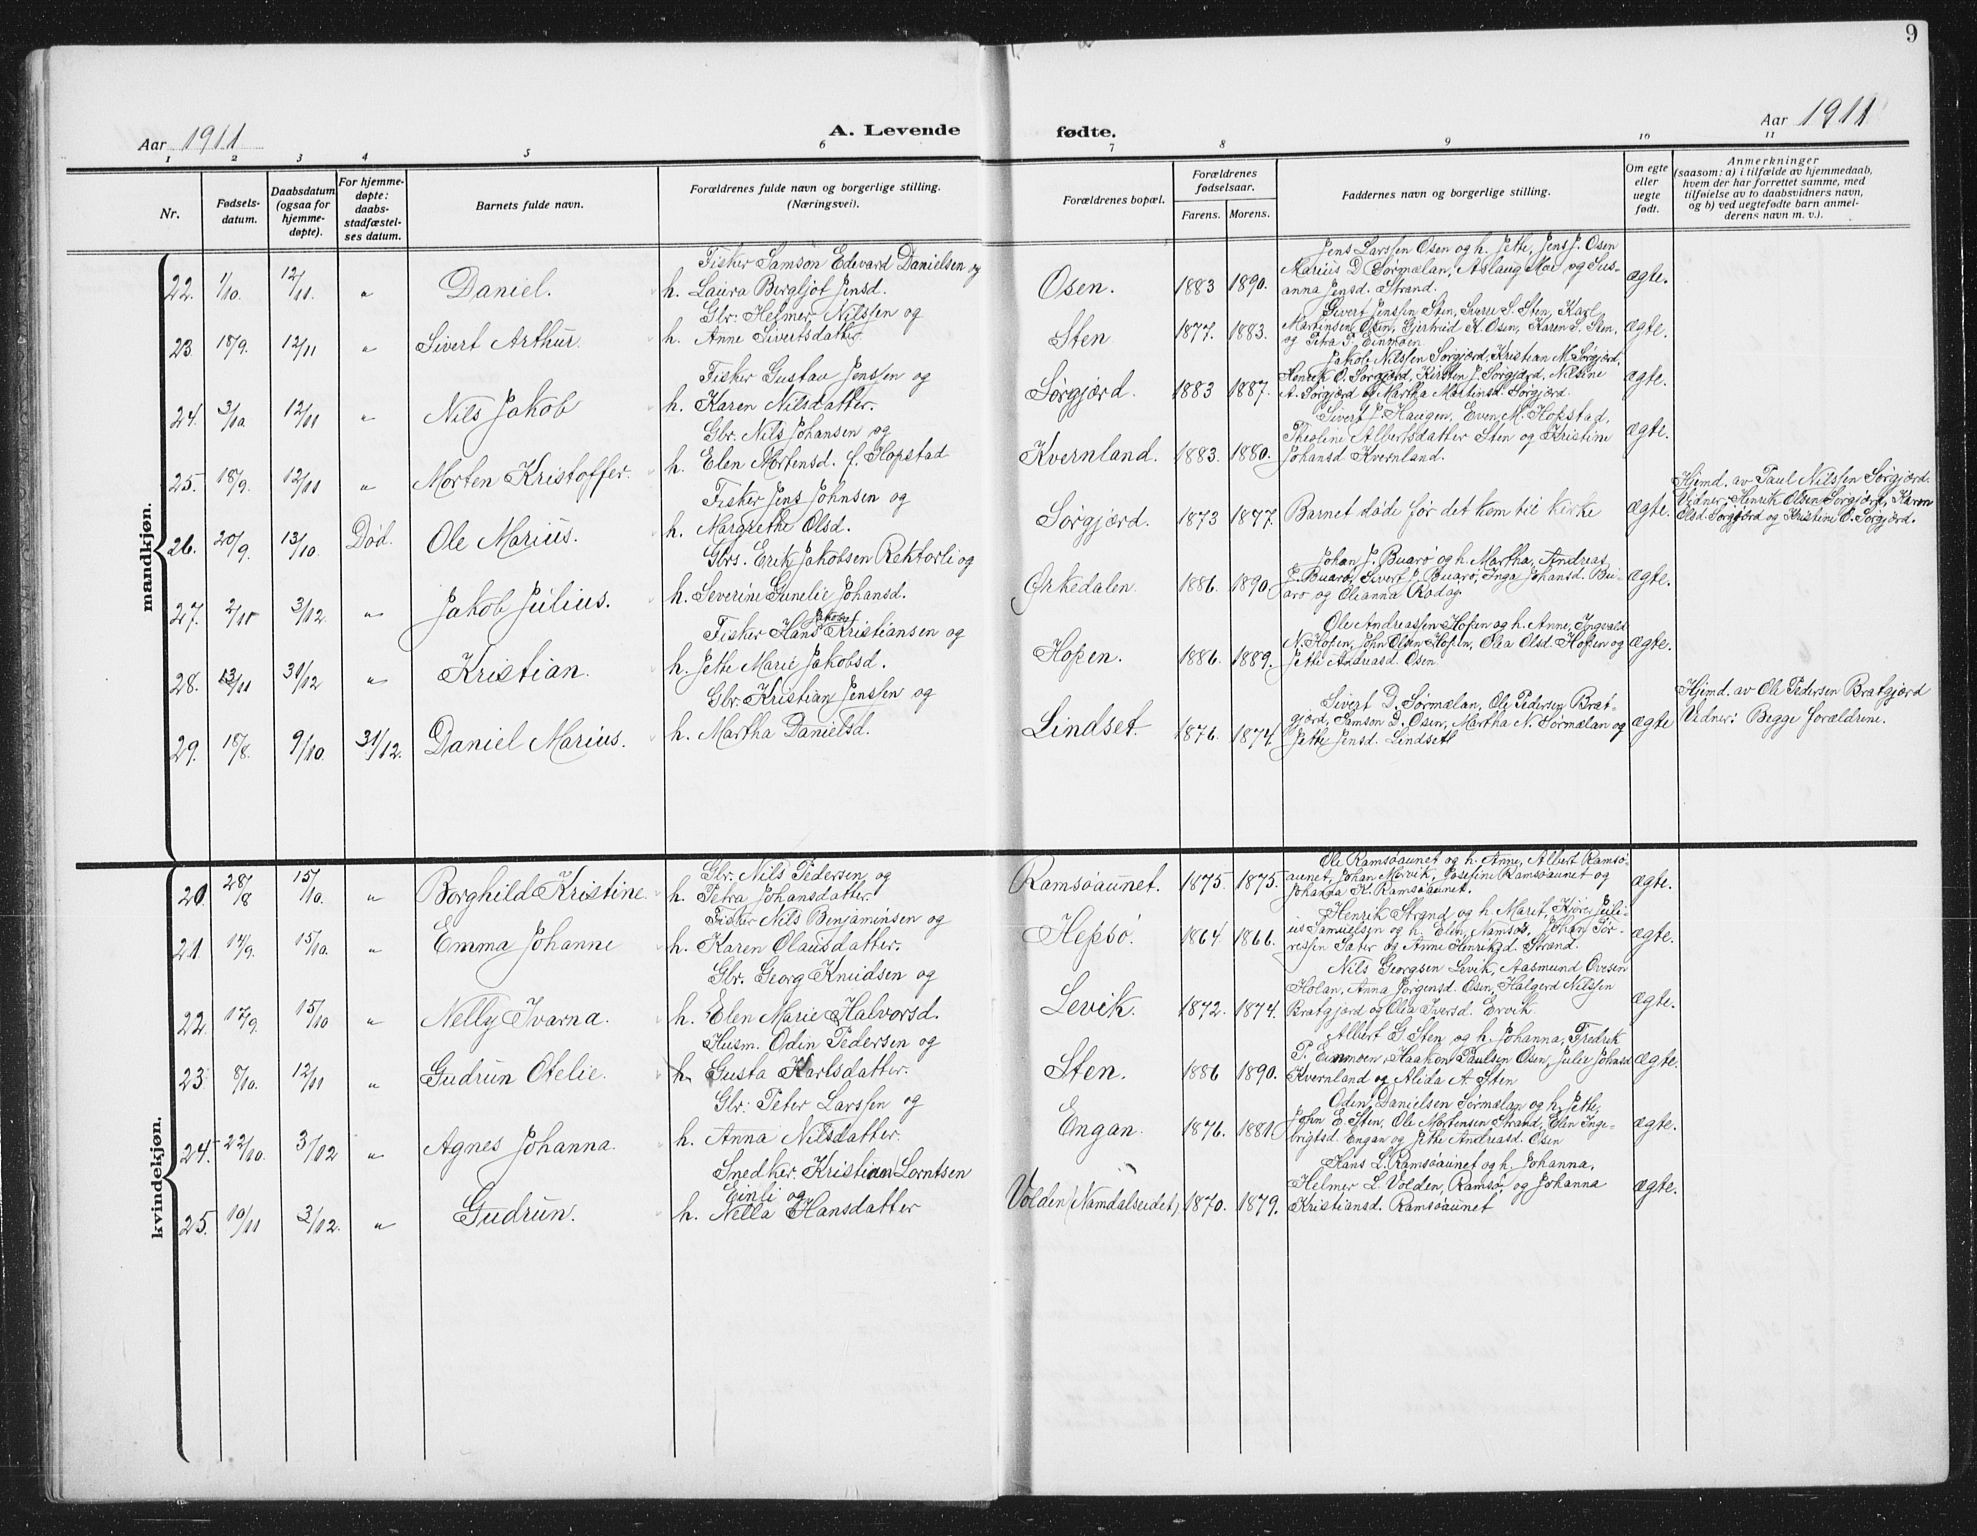 9
Aar 1911
A. Levende fødte.
Aar 1911
1 2 3 4 5 6 7 8 9 10 11
Nr.
Fødsels-
datum.
Daabsdatum
(ogsaa for
hjemme-
døpte).
For hjemme-
døpte:
daabs-
stadfæstel-
ses datum.
Barnets fulde navn.
Forældrenes fulde navn og borgerlige stilling.
(Næringsvei).
Forældrenes bopæl.
Forældrenes
fødselsaar.
Farens. Morens.
Faddernes navn og borgerlige stilling.
Om egte
eller
uegte
født.
Anmerkninger
(saasom: a) i tilfælde av hjemmedaab,
hvem der har forrettet samme, med
tilføielse av to daabsvidners navn,
og b) ved uegtefødte barn anmel-
derens navn m. v.).
mandkjøn.
22. 1/10. 12/11. „ Daniel.
Fisker Samson Edevard Danielsen og
h. Laura Bergljot Jensd.
Osen. 1883 1890.
Jens Larssen Osen og h. Jette, Jens J. Osen
Marius D Sørmælan, Aslaug Moe og Sus-
anna Jensd. Strand.
Ægte.
23. 18/9. 12/11 „ Sivert Arthur.
Gbr: Helmer Nilssen og
h. Anne Sivertsdatter
Sten 1877. 1883.
Sivert Jenssen Sten, Sverre S. Sten, Karl
Martinsen Osen, Gjertrud K. Osen, Karen S. Sten,
og Petra P. Einmoen.
Ægte.
24. 3/10 12/11 „ Nils Jakob
Fisker Gustav Jenssen og
h. Karen Nilsdatter.
Sørgjærd. 1883 1887.
Jakob Nilssen Sørgjærd, Kristian M. Sørgjærd,
Henrik O. Sørgjærd, Kirsten J. Sørgjærd, Nilsine
A. Sørgjærd og Martha Martinsd. Sørgjærd.
Ægte.
25. 18/9. 12/11 „ Morten Kristoffer.
Gbr. Nils Johansen og
h. Elen Mortensd. f. Hopstad
Kvernland. 1883. 1880.
Sivert J. Haugen, Even M. Hopstad,
Theoline Albertsdatter Sten og Kristine
Johansd Kvernland.
Ægte.
26. 20/9. 13/10. Død. Ole Marius.
Fisker Jens Johnsen og
h. Margrethe Olsd.
Sørgjærd. 1873 1877.
Barnet døde før det kom til kirke
Ægte.
Hjemd. av Paul Nilssen Sørgjærd.
Vidner: Henrik Olsen Sørgjærd, Karen
Olsd. Sørgjærd og Kristine O. Sørgjærd.
27. 2/11 3/12. „ Jakob Julius.
Gbrs. Erik Jakobsen Rektorli og
h. Severine Gunelie Johansd.
Ørkedalen. 1886. 1890.
Johan J. Buarø og h. Martha, Andreas
J. Buarø, Sivert J. Buarø, Inga Johansd. Bu-
arø og Olianna Rødøg.
Ægte.
28. 13/11 31/12 „ Kristian.
Fisker Hans Jakob Kristiansen og
h. Jette Marie Jakobsd.
Hopen. 1886. 1889.
Ole Andreassen Hopen og h. Anne, Ingvald
N. Hopen, John Olsen Hopen, Olea Olsd. Hopen og
Jette Andreasd. Osen.
Ægte.
29. 18/8. 9/10. 31/12. Daniel Marius.
Gbr. Kristian Jenssen og
h. Martha Danielsd.
Lindset. 1876. 1874.
Sivert D. Sørmælan, Ole Pedersen Brat-
gjærd, Samson D. Osen, Martha N. Sørmælan og
Jette Jensd. Lindset
Ægte
Hjemd. av Ole Pedersen Bratgjærd
Vidner: Begge forældrene.
kvindekjøn.
20. 28/8 15/10. „ Borghild Kristine.
Gbr. Nils Pedersen og
h. Petra Johansdatter.
Ramsøaunet. 1875. 1875.
Ole Ramsøaunet og h. Anne, Albert Ramsø-
aunet, Johan Mørvik, Josefine Ramsøaunet og
Johanna K. Ramsøaunet.
Ægte.
21. 14/9. 15/10. „ Emma Johanne
Fisker Nils Benjaminsen og
h. Karen Olausdatter.
Hepsø. 1864. 1866.
Henrik Strand og h. Marit, Juli-
us Samuelsen og h. Elen, Namsos, Johan Tor-
ressen Sæter og Anne Henriksd. Strand.
Ægte.
22. 17/9. 15/10 „ Nelly Ivarna.
Gbr. Georg Knudsen og
h. Elen Marie Halvorsd.
Levik. 1872. 1874.
Nils Georgsen Levik, Aasmund Ovesen
Holan, Anna Jørgensd. Osen, Halgerd Nilssen
Bratgjærd og Olea Iversd. Ervik.
Ægte.
23. 8/10. 12/11 „ Gudrun Otelie.
Husm. Odin Pedersen og
h. Gusta Karlsdatter.
Sten. 1886 1890.
Albert G Sten og h. Johanna, Fredrik
P. Einmoen, Haakon Paulsen Osen, Julie Johansd
Kvernland og Alida A. Sten
Ægte.
24. 22/10. 3/12 „ Agnes Johanna.
Gbr: Peter Larssen og
h. Anna Nilsdatter.
Engan. 1876. 1881.
Odin Danielsen Sørmælan og h. Jette,
John E. Sten, Ole Mortensen Strand, Elen Inge-
brigtsd. Engan og Jette Andreasd. Osen
Ægte.
25. 10/11 3/12. „ Gudrun.
Snedker. Kristian Lorntsen
Einli og
h. Nella Hansdatter
Volden (Namdalseidet) 1870. 1879.
Hans L. Ramsøaunet og h. Johanna,
Helmer L. Volden, Ramsø, og Johanna
Kristiansd. Ramsøaunet
Ægte.